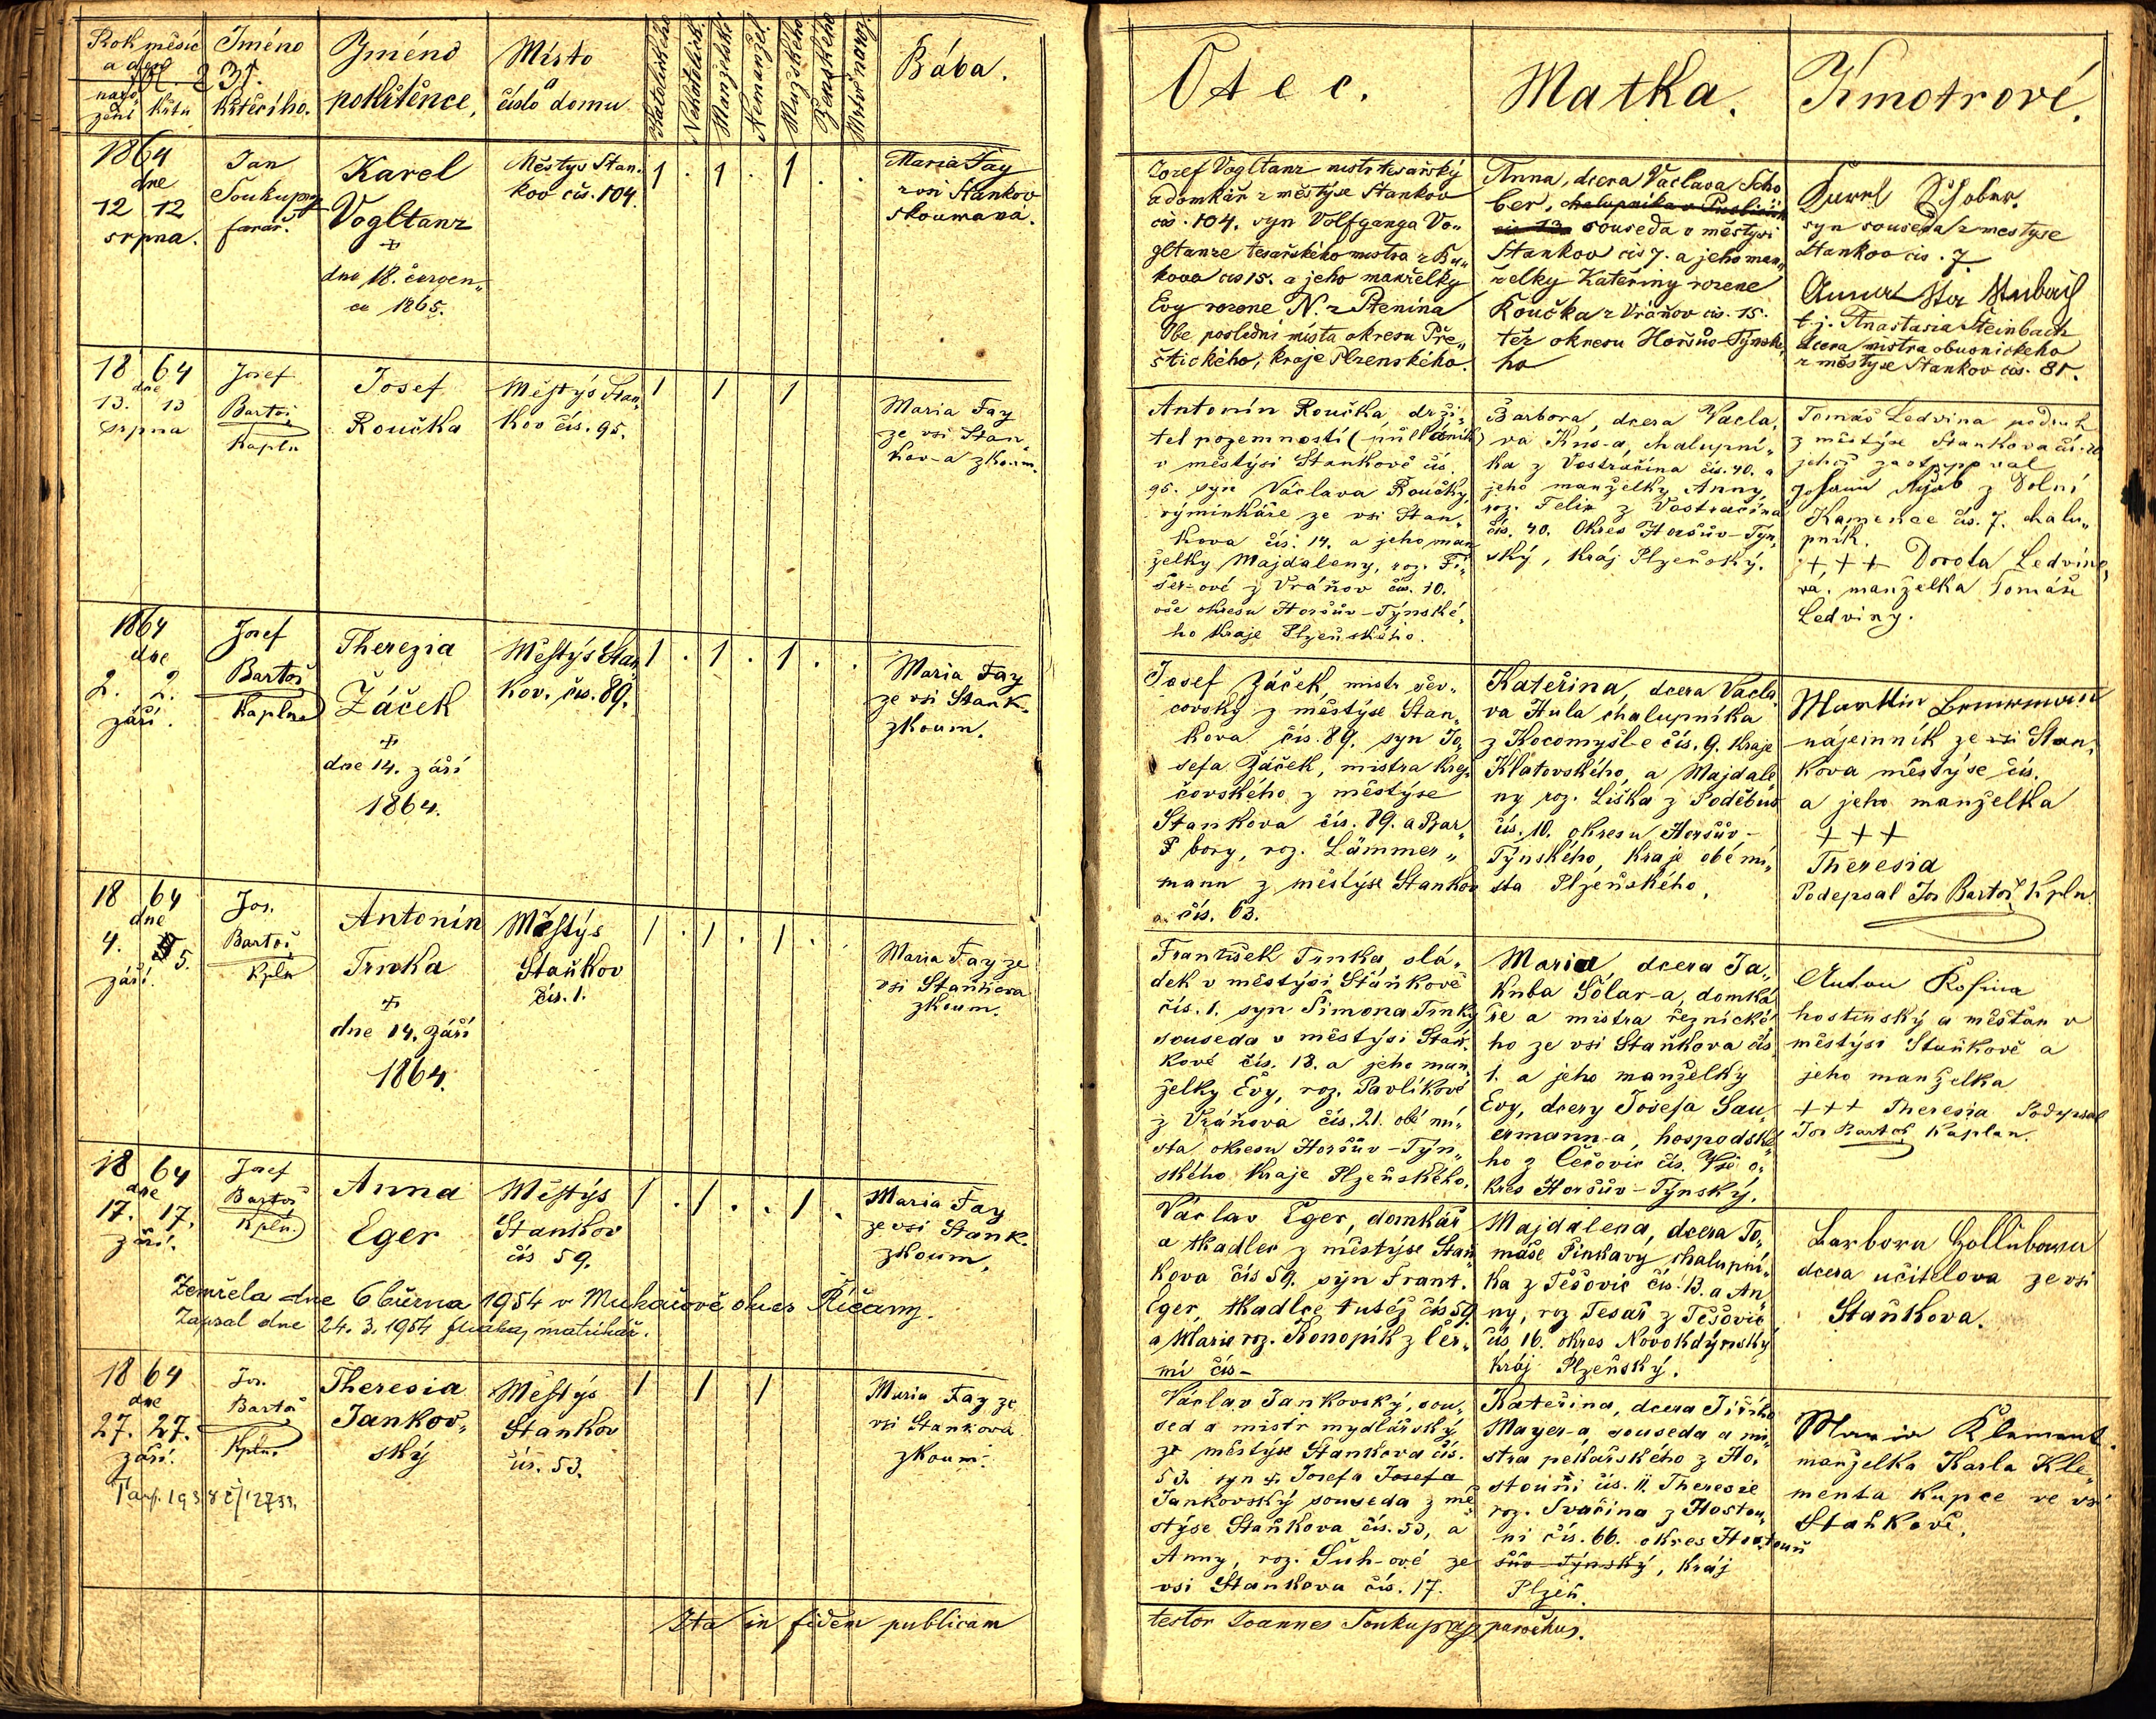 Rok měsíc
a den
naro-
zení
křtu
Fol. 231.
Jméno
křtícího.
Jméno
pokřtěnce.
Místo
a
číslo domu.
Katolického
Nekatolick.
Manželské
Nemanžel.
Mužského
Ženského
Mrtvě naroz.
Bába.
Otec.
Matka.
Kmotrové.
1864
dne
12 12
srpna.
Jan
Soukup
farář.
Karel
Vogltanz
+
dne 18. červen„
ce 1865.
Městys Stan„
kov čís. 104.
1 . 1 . 1 . .
Maria Fay
z vsi Stankov
skoumaná.
Josef Vogltanz mistr tesařský
a domkář z městyse Stankov
čís. 104. syn Volfganga Vo„
gltanze tesařského mistra z Bu„
kova čís 15. a jeho manželky
Evy rozene N. z Ptenína
Obe poslední místa okresu Pře„
štického, kraje Plzenského.
Anna, dcera Vaclava Scho
ber, chalupníka
souseda v městysi
Stankov čís 7. a jeho man„
želky Kateřiny rozene
Koučka z Vráňov cis. 15.
též okresu Horšův-Týnské„
ho
Karl Schober
syn souseda z mestyse
Stankov cis. 7.
Anna Steinbach
t. j. Anastasia Šteinbach
dcera mistra obuvnickeho
z městyse Stankov cis. 85.
18 64
dne
13. 13
srpna
Josef
Bartoš
Kapln
Josef
Roučka
Městýs Stan„
kov čís. 95.
1 1 1
Maria Fay
ze vsi Stan„
kov-a zkoum.
Antonín Roučka, drži„
tel pozemností (půlláník)
v městýsi Stankově čís.
95. syn Václava Roučky,
výminkáře ze vsi Stan„
kova čís. 14. a jeho man
želky Majdaleny, roz. Fi„
šer-ové z Vráňov čís. 10.
vše okresu Horšův-Týnské„
ho kraje Plzeňského.
Barbora, dcera Václa„
va Kus-a, chalupní„
ka z Vostračína čís. 40. a
jeho manželky Anny
roz. Felix z Vostračína
čís. 40. Okres Horšův-Týn„
ský, kráj Plzeňský.
Tomáš Ledvina podruh
z městýse Stankova čís. 20
jehož zastupoval
Johann z Dolní
Kamenice čís. 7. chalu„
pník.
+ + + Dorota Ledvino„
va, manželka Tomáše
Ledviny.
1864
dne
2. 2.
září.
Josef
Bartoš
Kapln
Therezia
Žáček
+
dne 14. září
1864.
Městýs Stan„
kov. čís. 89.
1 . 1 . 1 . .
Maria Fay
ze vsi Stank.
zkoum.
Josef Žáček, mistr šev„
covský z městýse Stan„
kova čís. 89. syn Jo„
sefa Žáček, mistra krej„
čovského z městýse
Stankova čís. 89. a Bar„
bory, roz. Lämmer„
mann z městýse Stankov
a čís. 63.
Kateřina, dcera Václa„
va Hula chalupníka
z Kocomyšl-e čís. 9. kraje
Klatovského, a Majdale„
ny roz. Liška z Poděbus
čís. 10. okresu Horšův-
Týnského, kraje obé mí„
sta Plzeňského.
Martin
nájemník ze vsi Stan„
kova městýse čís.
a jeho manželka
+ + +
Theresia
Podepsal Jos Bartoš Kpln.
18 64
dne
4. 5.
září.
Jos.
Bartoš
Kpln
Antonín
Trnka
+
dne 14. září
1864.
Městýs
Staňkov
čís. 1.
1 . 1 . 1 . .
Maria Fay ze
vsi Staňkova
zkoum.
František Trnka, slá„
dek v městýsi Staňkově
čís. 1. syn Šimona Trnky
souseda v městýsi Staň„
kově čís. 18. a jeho man„
želky Evy, roz. Pavlíkové
z Vráňova čís. 21. obé mí„
sta okresu Horšův-Týn„
ského kraje Plzeňského.
Maria, dcera Ja„
kuba Solar-a, domká„
ře a mistra řeznické„
ho ze vsi Staňkova čís
1. a jeho manželky
Evy, dcery Josefa Sau„
ermann-a, hospodské„
ho z Čečovic čís. Vše o„
kres Horšův-Týnský.
Anton Rosina
hostinský a měšťan v
městýsi Staňkově a
jeho manželka
+++ Theresia Podepsal
Jos Bartoš Kaplan.
18 64
dne
17. 17.
září.
Josef
Bartoš
Kpln.
Anna
Eger
Městýs
Stankov
čís 59.
1 . 1 . . 1 .
Maria Fay
ze vsi Stank.
zkoum.
Zemřela dne 6 března 1954 v Mukařově okres Říčany.
Zapsal dne 24. 3. 1954 matrikář.
Václav Eger, domkář
a tkadlec z městýse Staň„
kova čís 59. syn Frant.
Eger, tkadlce tutéž čís 59
a Marie roz. Konopík z Čer„
mi čís-
Majdalena, dcera To„
máše Činkavy chalupní„
ka z Těšovic čís. 13. a An„
ny, roz Tesař z Těšovic
čís 16. okres Novokdýnský
kráj Plzeňský.
Barbora Hollubowa
dcera učitelova ze vsi
Staňkova.
18 64
dne
27. 27.
září.
Jos.
Bartoš
Kpln.
Theresia
Jankov„
ský
Městýs
Stankov
čís. 53.
1 1 1
Maria Fay ze
vsi Stankova
zkoum.
Václav Jankovský, sou„
sed a mistr mydlářský
ze městýse Stankova čís.
53. syn + Josefa Josefa
Jankovský souseda z mě„
stýse Staňkova čís. 53, a
Anny, roz. Suh-ové ze
vsi Stankova čís. 17.
Kateřina, dcera Jiřího
Mayer-a, souseda a mi„
stra pekařského z Ho„
stouni čís. 11. Theresie
roz. Svačina z Hostou„
ni čís. 66. okres Hostouň
šův Týnský, kráj
Plzeň.
Maria Klement.
manželka Karla Kle„
menta kupce ve vsi
Staňkově.
Ita in fidem publicam
testor Joannes Soukup parochus.